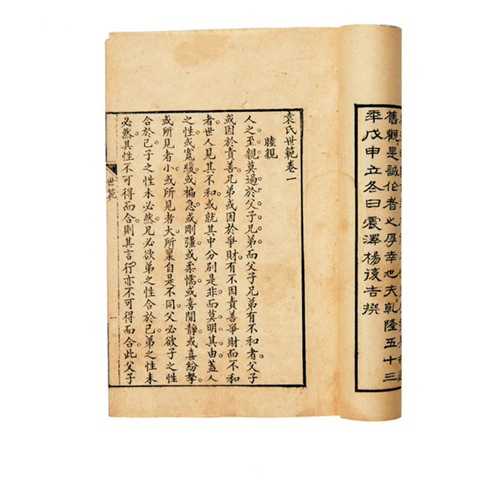 舊觀是誠伦者之厚幸也夫乾隆五十三
年戊申立冬日震澤楊復吉撰
袁氏世範卷一
睦親
人之至親莫過於父子兄弟而父子兄弟有不和者。父子
或因於責善。兄弟或因於爭財。有不因責善爭財而不和
者。世人見其不和。或就其中分別是非。而莫明其由。蓋人
之性。或寬緩。或褊急。或剛彊。或柔懦。或喜閒靜。或喜紛拏
或所見者小。或所見者大。所稟自是不同。父必欲子之性
合於己。子之性未必然。兄必欲弟之性合於己。弟之性未
必然。其性不可得而合。則其言行亦不可得而合。此父子
世範
一